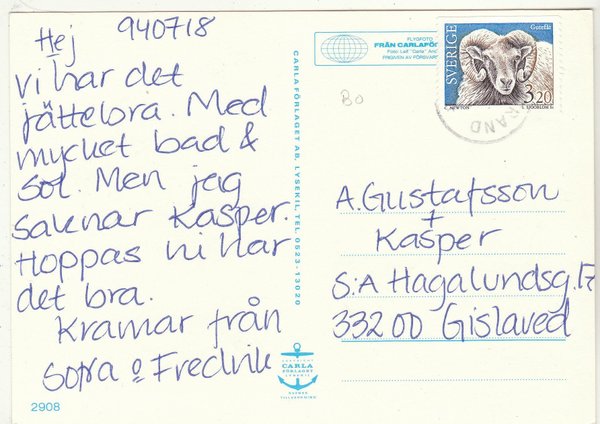 Hej 940718
vi har det
jättebra. Med
mycket bad &
sol. Men jag
saknar Kasper.
Hoppas ni har
det bra.
Kramar från
Sofia o Fredrik
2908
CARLA FÖRLAGET AB, LYSEKIL TEL. 0523-13020
CARLA
FÖRLAGET
LYSEKIL
FLYGFOTO
FRÅN CARLAFÖR
Bo
SVERIGE
Gutefår
3,20
C. NEWTON
L. SJÖÖBLOM SC
RAND
A. Gustafsson
+
Kasper
S:A Hagalundsg. 17
332 00 Gislaved